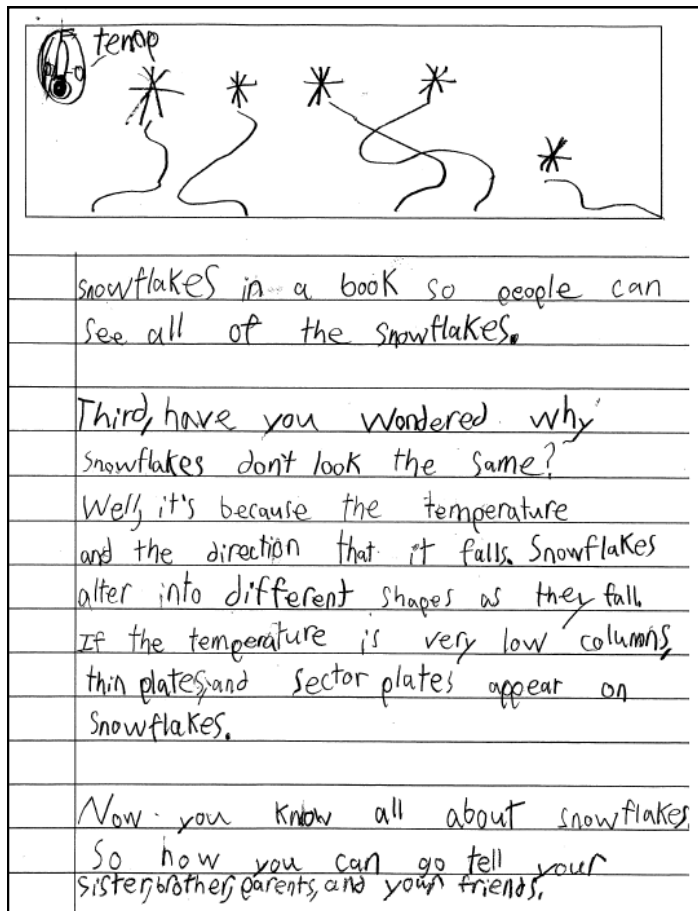 temp
snowflakes in a book so people can
see all of the snowflakes.
Third, have you wondered why
snowflakes don't look the same?
Well, it's because the temperature
and the direction that it falls. Snowflakes
alter into different shapes as they fall.
If the temperature is very low columns,
thin plates, and sector plates appear on
snowflakes.
Now you know all about snowflakes.
So how you can go tell your
sister, brother, parents, and your friends.